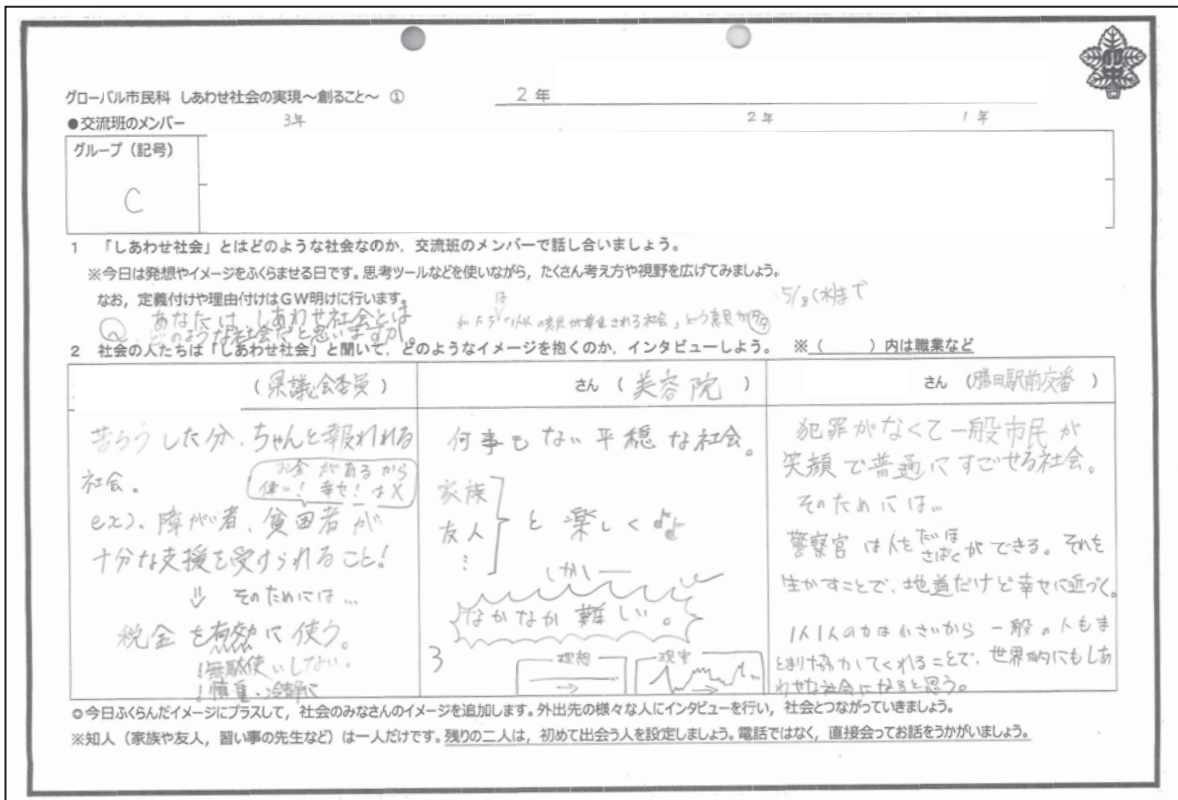 グローバル市民科 しあわせ社会の実現~創ること~ ①
2年
●交流班のメンバー
3年
2年
1年
グループ(記号)
C
1 「しあわせ社会」とはどのような社会なのか,交流班のメンバーで話し合いましょう。
※今日は発想やイメージをふくらませる日です。思考ツールなどを使いながら,たくさん考え方や視野を広げてみましょう。
なお,定義付けや理由付けはGW明けに行います。
5/8(水)まで
Q. あなたは、しあわせ社会とは
どのような社会だと思いますか。
2 社会の人たちは「しあわせ社会」と聞いて,どのようなイメージを抱くのか,インタビューしよう。 ※( )内は職業など
(県議会委員)
苦ろうした分、ちゃんと報われる
社会。
お金があるから
偉い!幸せ!は×
ex). 障がい者、貧困者が
十分な支援を受けられること!
⇓ そのためには…
税金を有効に使う。
!無駄使いしない。
!慎重・冷静に
さん (美容院)
何事もない平穏な社会。
家族
友人
⋮
と楽しく♪
しかし
なかなか難しい。
3
理想
現実
さん (勝田駅前交番)
犯罪がなくて一般市民が
笑顔で普通にすごせる社会。
そのためには…
警察官は人をたいほ さばくができる。それを
生かすことで、地道だけど幸せに近づく。
1人1人の力は小さいから 一般の人もま
とまり協力してくれることで、世界的にもしあ
わせな社会になると思う。
◎今日ふくらんだイメージにプラスして,社会のみなさんのイメージを追加します。外出先の様々な人にインタビューを行い,社会とつながっていきましょう。
※知人(家族や友人,習い事の先生など)は一人だけです。残りの二人は,初めて出会う人を設定しましょう。電話ではなく,直接会ってお話をうかがいましょう。